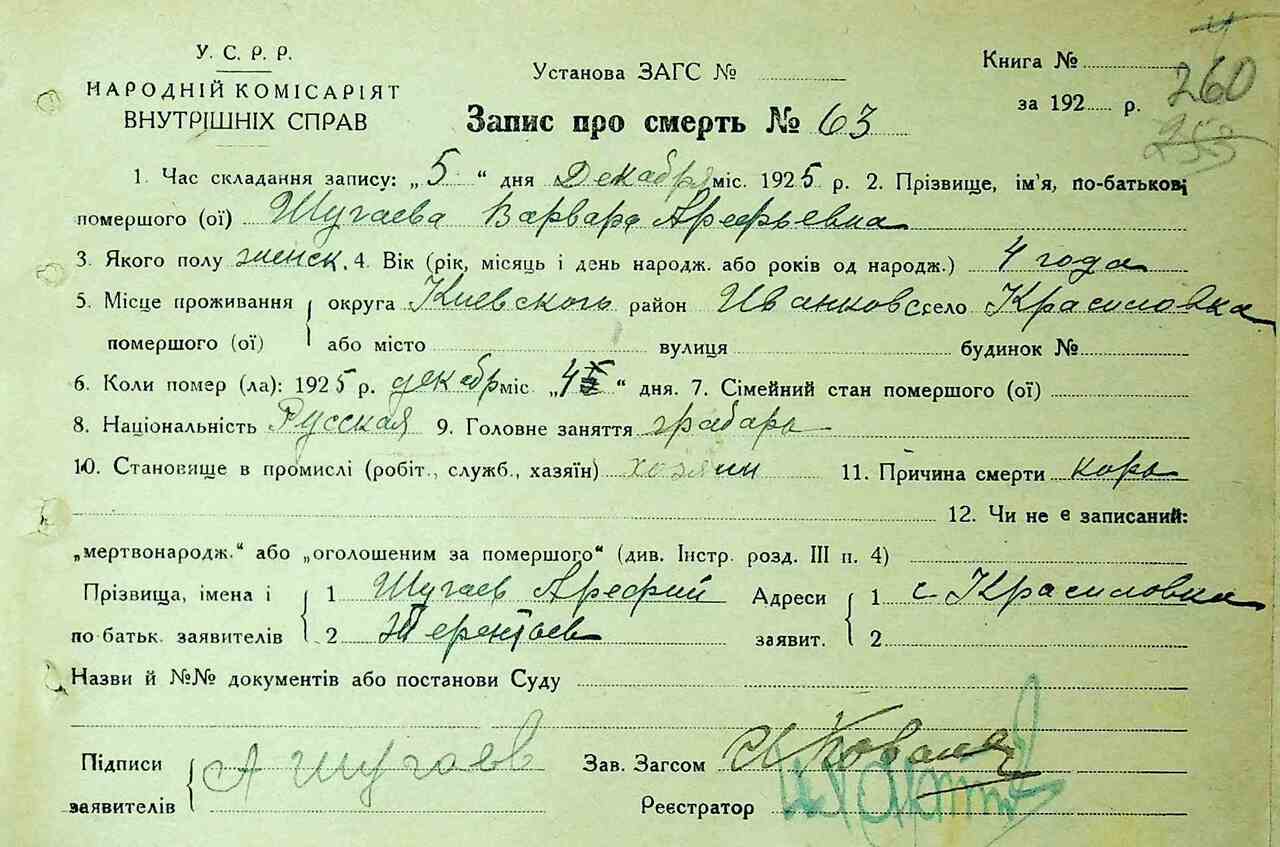 У. С. Р. Р.
НАРОДНІЙ КОМІСАРІЯТ
ВНУТРІШНІХ СПРАВ
Установа ЗАГС №
Книга №
за 192 р.
260
253
Запис про смерть № 63
1. Час складання запису: „5“ дня Декабря міс. 1925 р. 2. Прізвище, ім'я, по-батькові
помершого (ої) Шугаева Варвара Арефьевна
3. Якого полу женск. 4. Вік (рік, місяць і день народж. або років од народж.) 4 года
5. Місце проживання округа Киевского район Иванковс село Красиловка
помершого (ої) або місто вулиця будинок №
6. Коли помер (ла): 1925 р. декабр міс. „4“ дня. 7. Сімейний стан помершого (ої)
8. Національність Русская 9. Головне заняття грабарь
10. Становище в промислі (робіт., служб., хазяїн) хозяин 11. Причина смерти корь
12. Чи не є записаний:
„мертвонародж.“ або „оголошеним за помершого“ (див. Інстр. розд. III п. 4)
Прізвища, імена і 1 Шугаев Арефий Адреси 1 с. Красиловка
по батьк. заявителів 2 Терентьев заявит. 2
Назви й №№ документів або постанови Суду
Підписи А Шугаев Зав. Загсом
заявителів Реєстратор